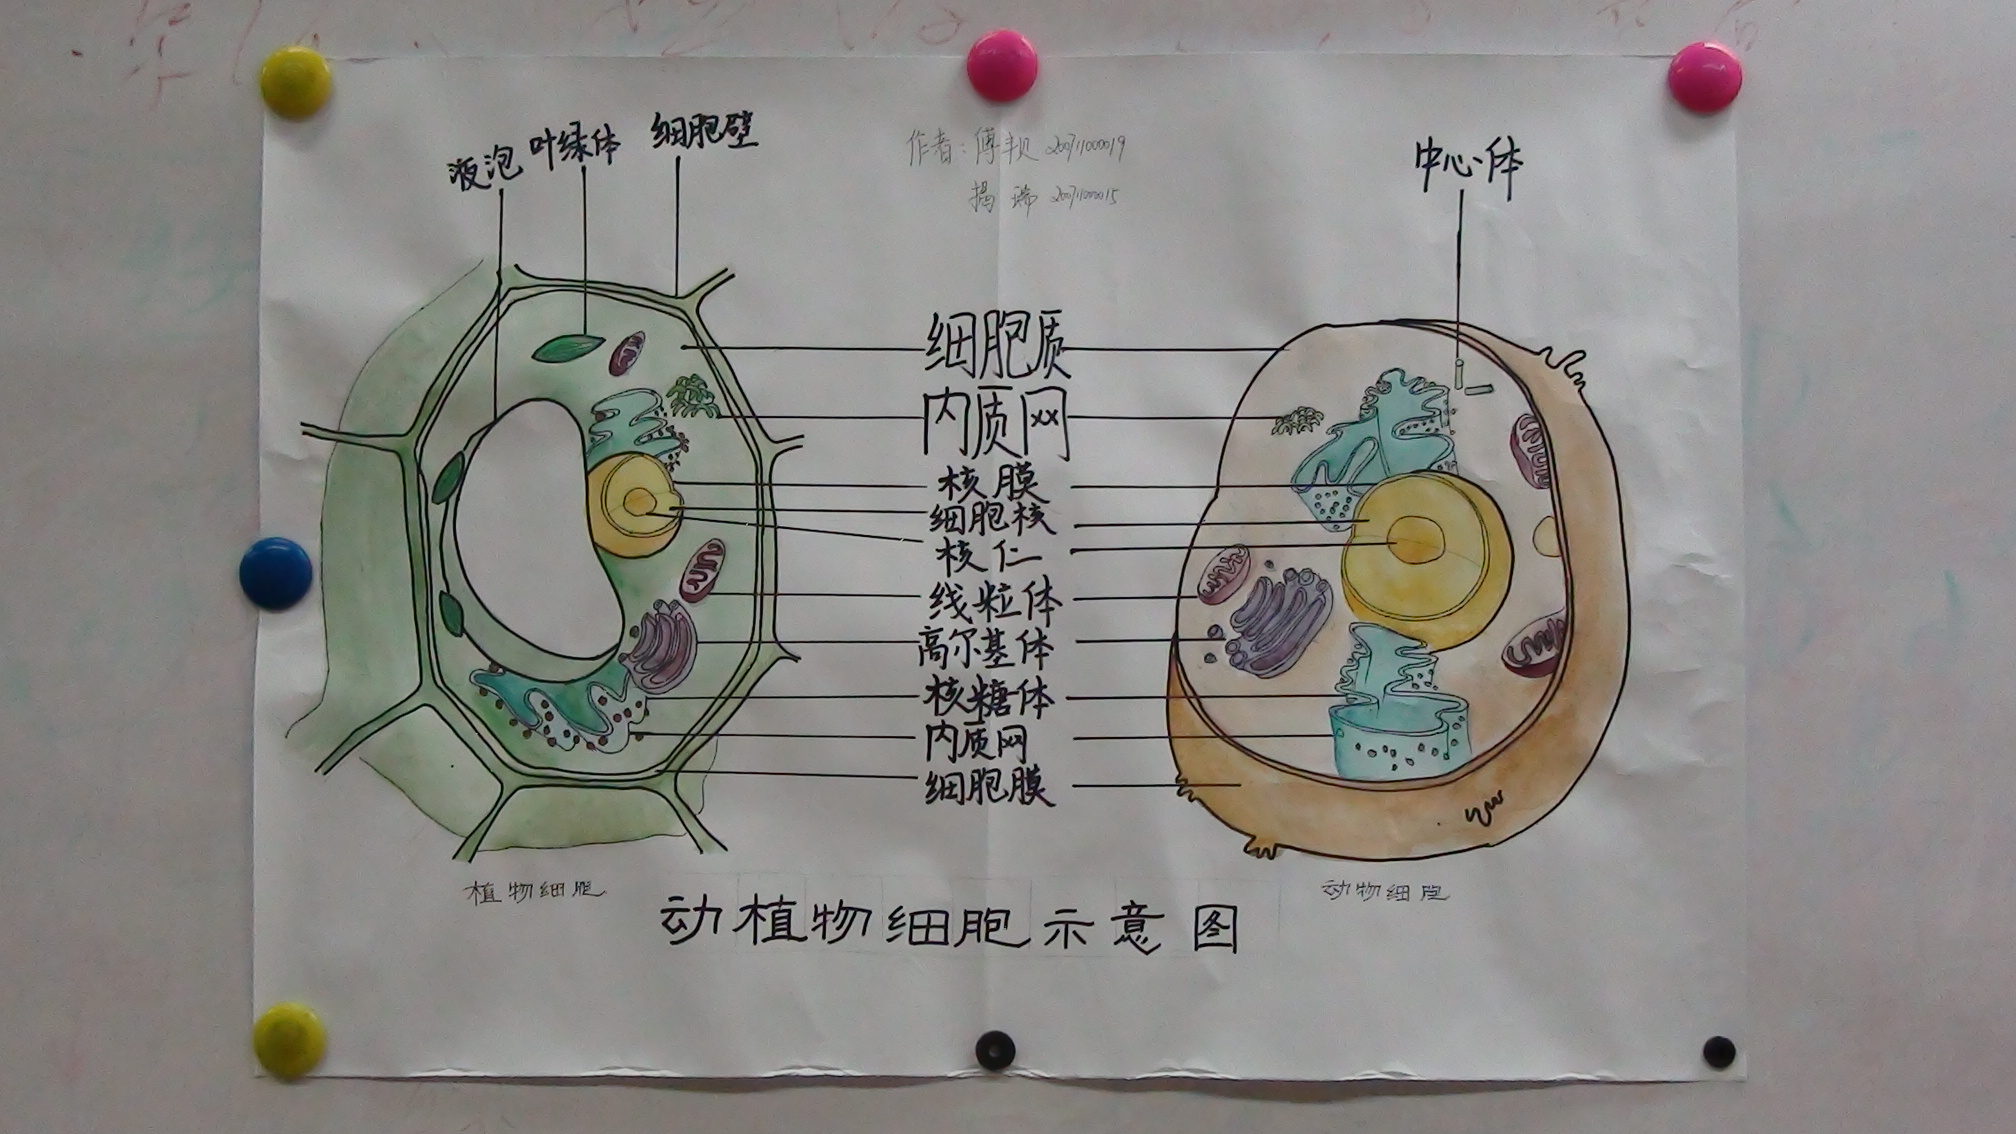 液泡 叶绿体 细胞壁
作者:傅
瑞
中心体
细胞质
内质网
核膜
细胞核
核仁
线粒体
高尔基体
核糖体
内质网
细胞膜
植物细胞
动物细胞
动植物细胞示意图